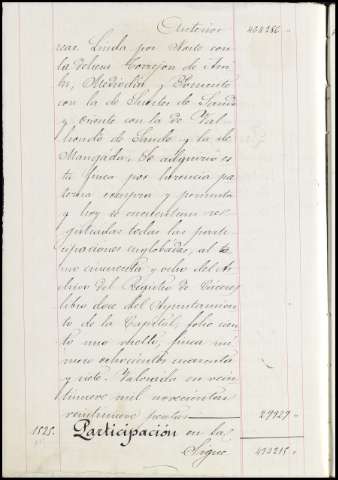 Anterior
reas. Linda por Norte con
la dehesa Torrejon de
Mediodia y Poniente
con la de Sancho de Sande
y Oriente con la de
de Sande y la de
Mangada. Se adquirió es
ta finca por herencia pa
terna compra y permuta
y hoy se encuentran re
gistradas todas las parti
cipaciones englobadas, al to
mo cuarenta y ocho del Ar
chivo del Registro de Cáceres
libro doce del Ayuntamien
to de la Capital, folio cien
to uno vuelto, finca nú
mero ochocientos cuarenta
y siete. Valorada en vein
tinueve mil novecientas
veintinueve pesetas 29929
1525. Participación en la
Sigue